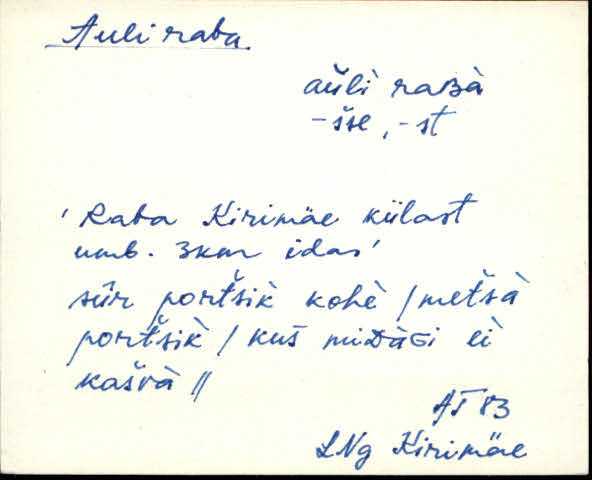 Auli raba
aŭli̬ raʙà
-š̀še, -st
' Raba Kirimäe külast
umb. 3km idas'
sūr portšik̀ kohè / metšà
portšik̀ / kuš miᴅàɢi ei
kašvà //
AT 83
LNg Kirimäe